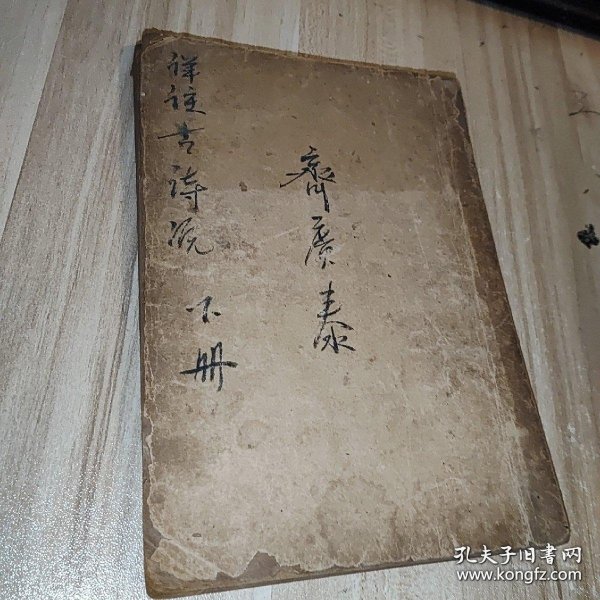 詳註古詩源 下册
齊廣泰
孔夫子旧书网
www.kongfz.com